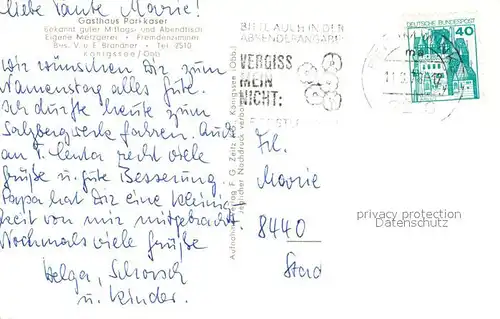 Liebe Tante Marie!
Gasthaus Parkkaser
Bekannt guter Mittags- und Abendtisch
Eigene Metzgerei • Fremdenzimmer
Bes. V. u. E. Brandner • Tel. 2510
Königssee/Obb.
Wir wünschen Dir zum
Namenstag alles Gute.
Ich durfte heute zum
Salzbergwerk fahren. Auch
an T. Centa recht viele
Grüße u. gute Besserung.
Papa hat Dir eine Kleinig
keit von mir mitgebracht.
Nochmals viele Grüße
Helga, Schorsch
u. Kinder.
Aufnahme Verlag F. G. Zeitz KG., Königssee (Obb.)
Jeglicher Nachdruck verboten
BITTE AUCH IN DER
ABSENDERANGABE
VERGISS
MEIN
NICHT:
DEUTSCHE BUNDESPOST
40
Frl.
Marie
8440
privacy protection
Datenschutz